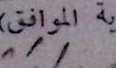 ية الموافق)
/ /